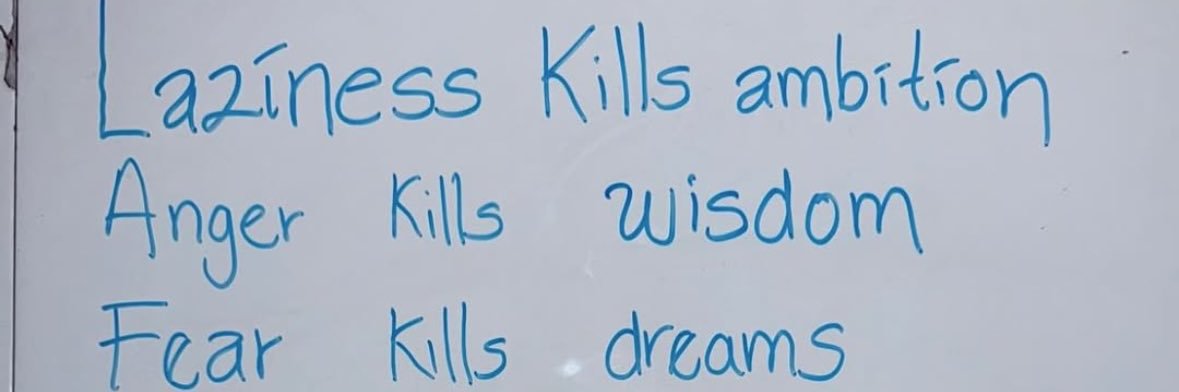 Laziness Kills ambition
Anger Kills wisdom
Fear Kills dreams